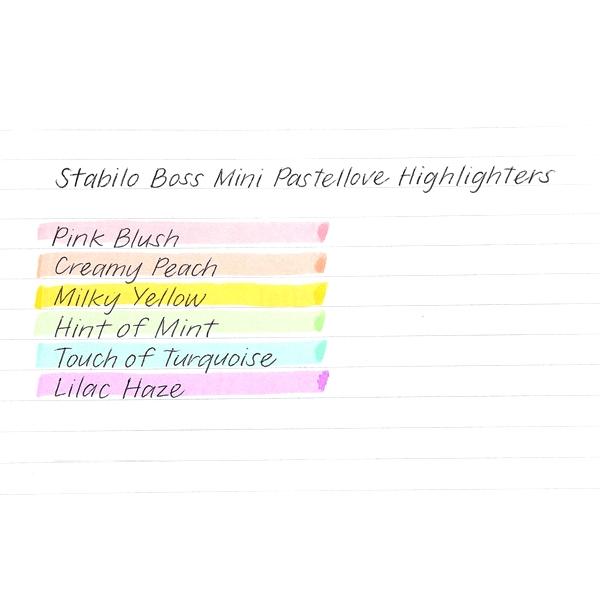 Stabilo Boss Mini Pastellove Highlighters
Pink Blush
Creamy Peach
Milky Yellow
Hint of Mint
Touch of Turquoise
Lilac Haze